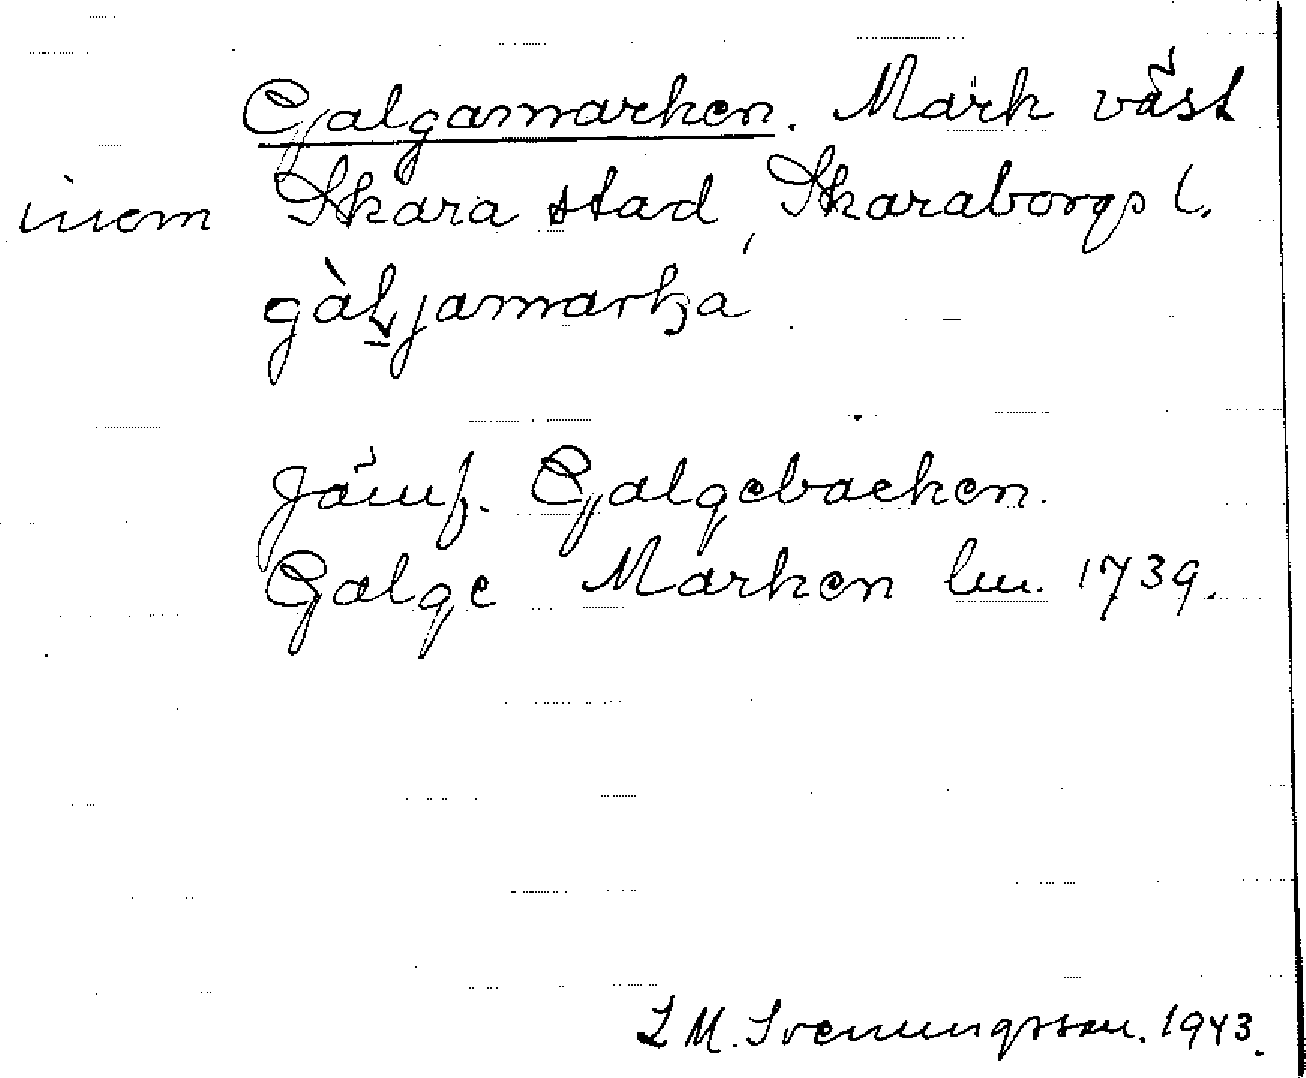 Galgamarken. Mark väst
inom Skara stad, Skaraborgs l.
gàļjamarka
Jämf. Galgebacken.
Galge Marken lm. 1739.
L M. Svenungsson. 1943.